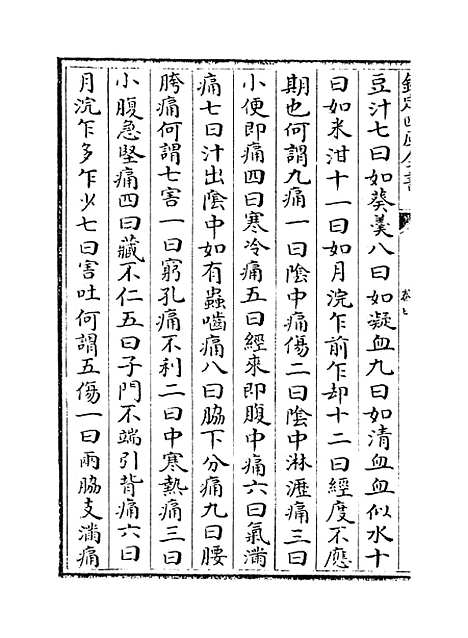 欽定四庫全書
卷七
豆汁七曰如葵羮八曰如凝血九曰如清血血似水十
曰如米泔十一曰如月浣乍前乍却十二曰經度不應
期也何謂九痛一曰陰中痛傷二曰陰中淋瀝痛三曰
小便即痛四曰寒冷痛五曰經來即腹中痛六曰氣滿
痛七曰汁出陰中如有蟲嚙痛八曰脇下分痛九曰腰
胯痛何謂七害一曰窮孔痛不利二曰中寒熱痛三曰
小腹急堅痛四曰藏不仁五曰子門不端引背痛六曰
月浣乍多乍少七曰害吐何謂五傷一曰兩脇支滿痛